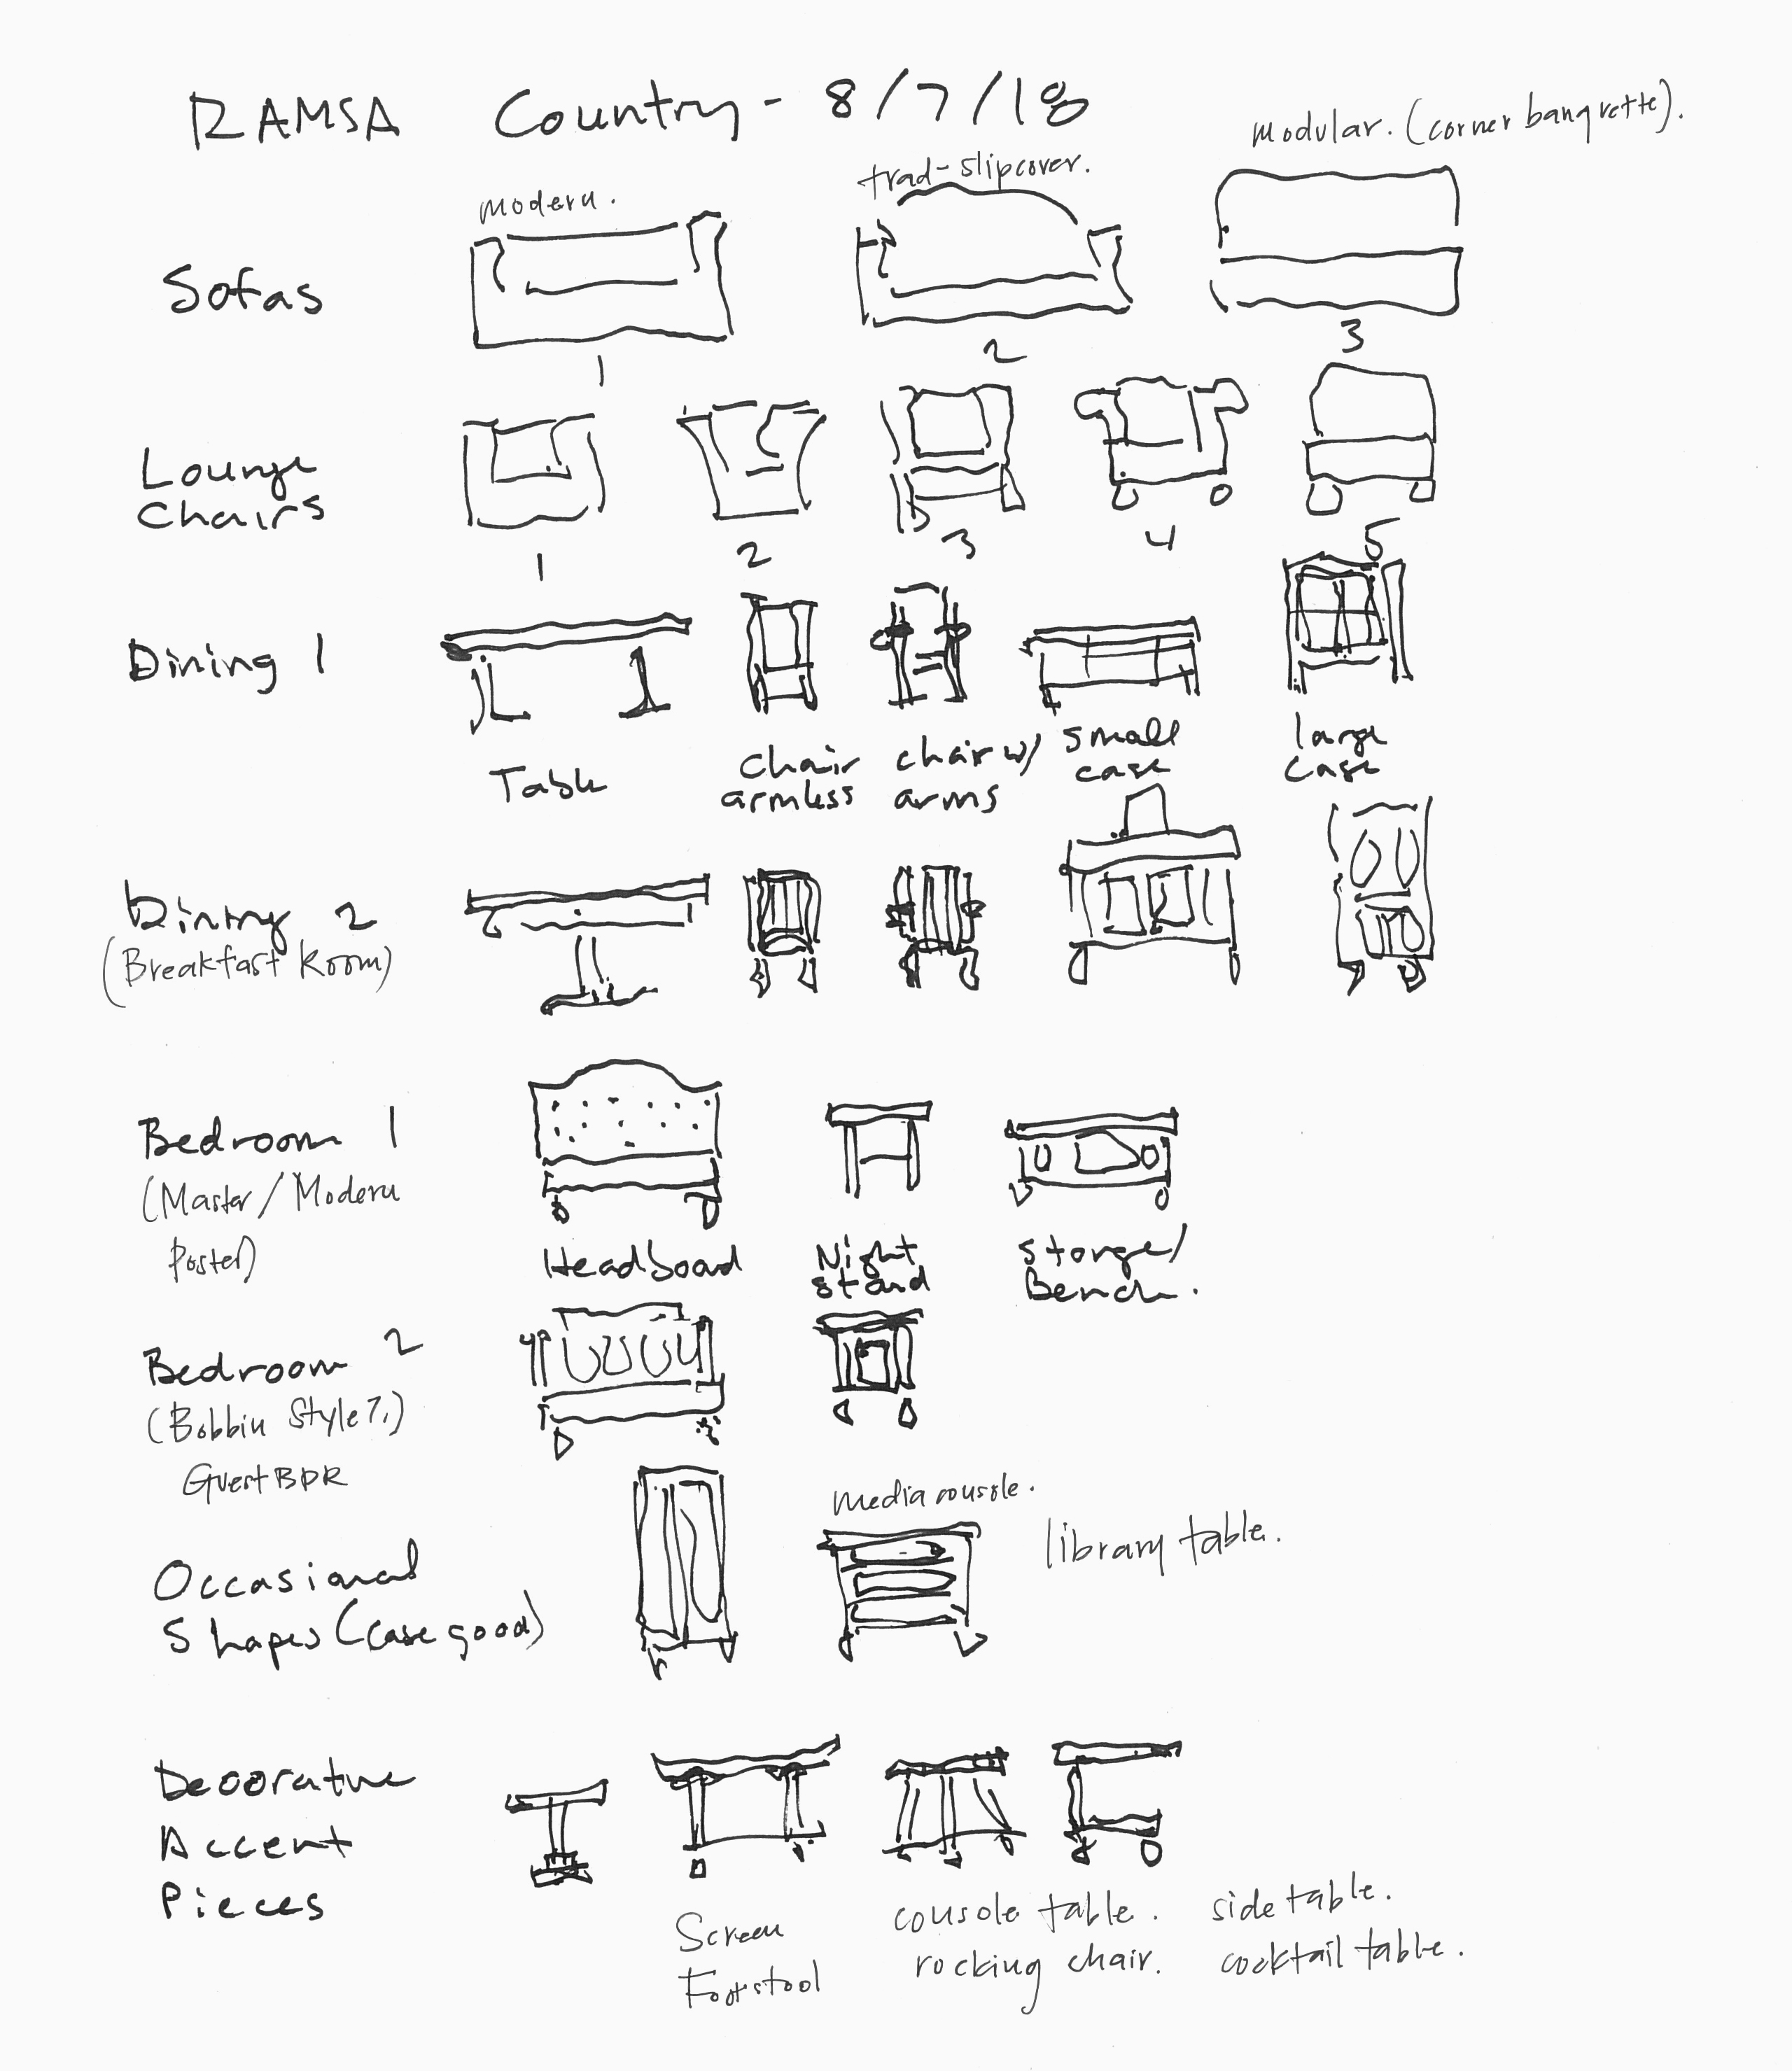 RAMSA Country - 8/7/18
modern.
trad-slipcover.
modular. (corner banqvette).
Sofas
1
2
3
Lounge
Chairs
1
2
3
4
5
Dining 1
Table
chair
armless
chair w/
arms
small
case
large
case
Dining 2
(Breakfast Room)
Bedroom 1
(Master/Modern
Poster)
Headboad
Night
stand
Storge/
Bench.
Bedroom 2
(Bobbin Style?.)
Guest BDR
Occasional
Shapes (case good)
media console.
library table.
Decorative
Accent
Pieces
Screen
Footstool
console table.
rocking chair.
side table.
cocktail table.